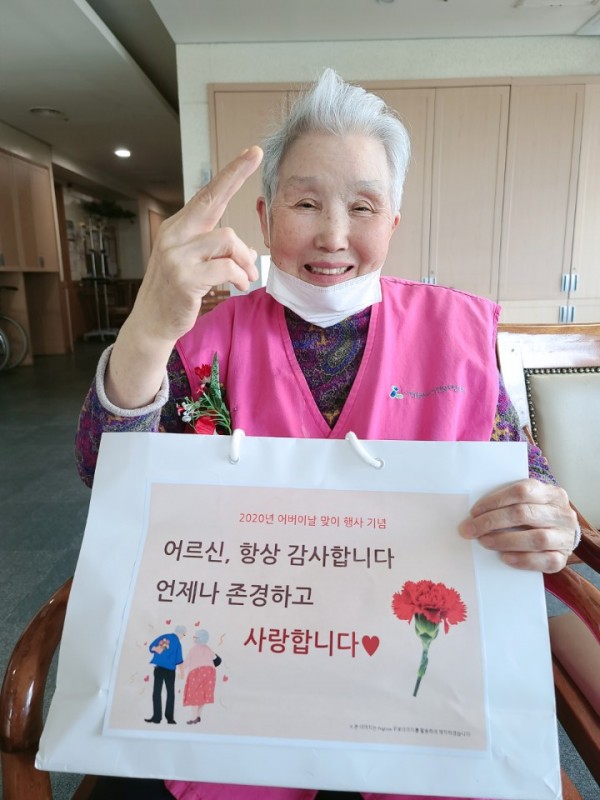 2020년 어버이날 맞이 행사 기념
어르신, 항상 감사합니다
언제나 존경하고
사랑합니다♥